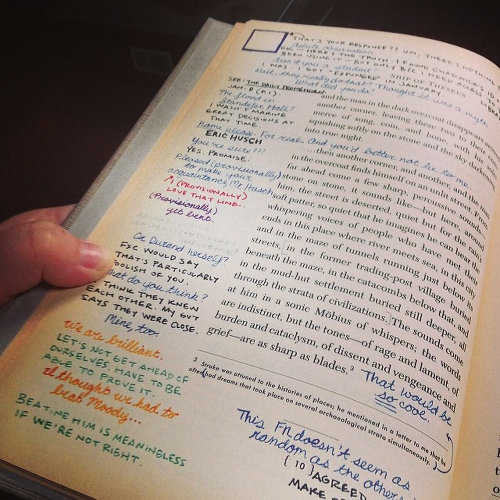 THAT'S YOUR RESPONSE?? UM, THERE'S NOTHING
HERE'S THE TRUTH: I FOUND
aren't you a student?
I WAS. I GOT "EXPUNGED" IN JANUARY
What did you do?
SEE: THE DAILY PRONGHORN
JAN 8 (A1).
The flood in
Standefer Hall?
I WASN'T MAKING
GREAT DECISIONS AT
THAT TIME
Name please. For real. And you'd better not lie to me.
ERIC HUSCH
You're sure???
YES. PROMISE.
Pleased (provisionally)
to make your
acquaintance Mr Husch
I (PROVISIONALLY)
LOVE THAT LINE.
(Provisionally)
yet bent.
Or Durand herself?
FXC WOULD SAY
THAT'S PARTICULARLY
FOOLISH OF YOU.
What do you think?
I THINK THEY KNEW
EACH OTHER. MY GUT
SAYS THEY WERE CLOSE.
Mine, too.
We are brilliant.
LET'S NOT GET AHEAD OF
OURSELVES. HAVE TO BE
ABLE TO PROVE IT.
& thought we had to
beat Moody...
BEATING HIM IS MEANINGLESS
IF WE'RE NOT RIGHT.
and the man in the dark overcoat disappears
corner, leaving
merce of song, coin, and bone, with his
squishing softly on the stone and the sky
into true night.
...then another corner, and another, and the man
in the overcoat finds himself on an unlit street, for
far ahead come a few sharp, percussive
stone on stone, it sounds like—but here, around
him, the street is deserted, quiet but for the
soft patter, so quiet that he imagines he can hear the
whispering voices of people who have met their
ends in this place where river meets sea, in this city
and in the maze of tunnels running just below the
streets, in the former trading-post village just
beneath the maze, in the catacombs below that, and
in the mud-hut settlement buried still deeper, all
through the strata of civilizations. The sounds come
at him in a sonic Möbius of whispers; the words
are indistinct, but the tones—of rage and lament, of
burden and cataclysm, of dissent and vengeance and
grief—are as sharp as blades.3
3 Straka was attuned to the histories of places; he mentioned in a letter to me that he
often had dreams that took place on several archaeological strata simultaneously.
That would be
so cool.
This FN doesn't seem as
random as the others
(10) AGREED
MAKE